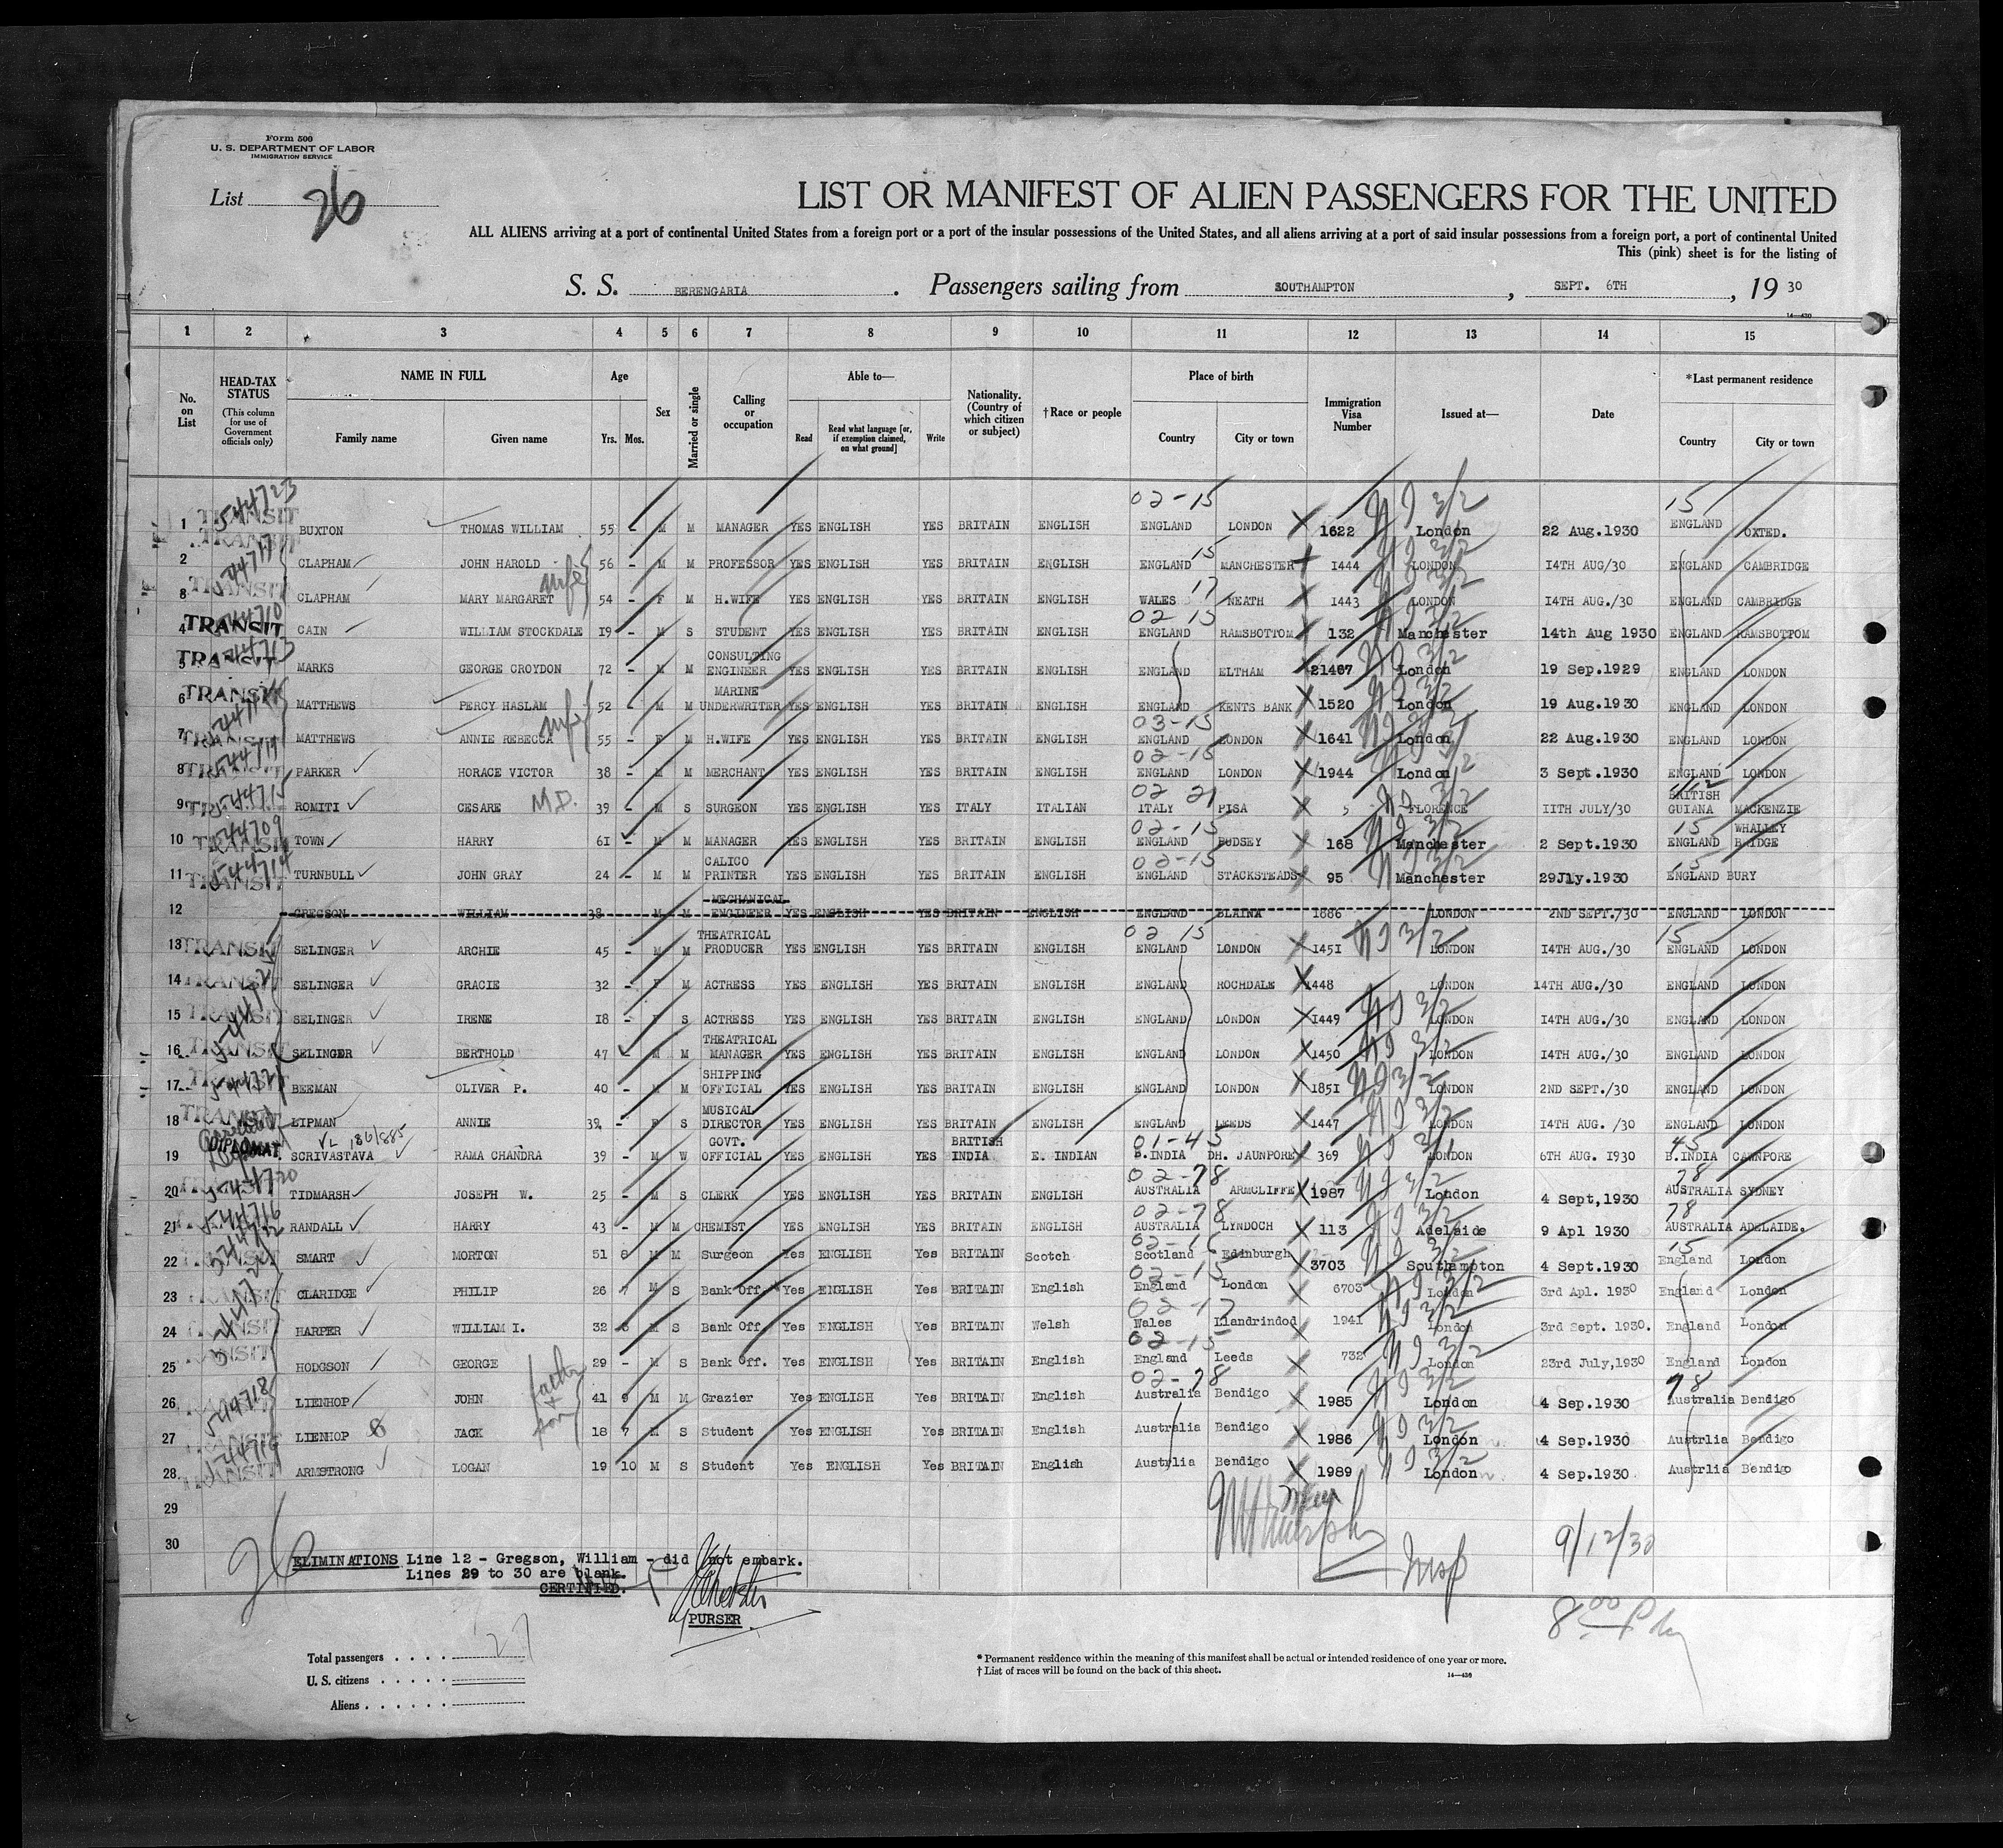 Form 500
U. S. DEPARTMENT OF LABOR
IMMIGRATION SERVICE
List 26
LIST OR MANIFEST OF ALIEN PASSENGERS FOR THE UNITED
ALL ALIENS arriving at a port of continental United States from a foreign port or a port of the insular possessions of the United States, and all aliens arriving at a port of said insular possessions from a foreign port, a port of continental United
This (pink) sheet is for the listing of
S. S. BERENGARIA. Passengers sailing from SOUTHAMPTON, SEPT. 6TH, 19 30
14—430
1 2 3 4 5 6 7 8 9 10 11 12 13 14 15
No. on List
HEAD-TAX STATUS (This column for use of Government officials only)
NAME IN FULL Family name Given name
Age Yrs. Mos.
Sex
Married or single
Calling or occupation
Able to— Read Read what language [or, if exemption claimed, on what ground] Write
Nationality. (Country of which citizen or subject)
†Race or people
Place of birth Country City or town
Immigration Visa Number
Issued at—
Date
*Last permanent residence Country City or town
02-15 15
1 TRANSIT 544723 BUXTON THOMAS WILLIAM 55 - M M MANAGER YES ENGLISH YES BRITAIN ENGLISH ENGLAND LONDON 1622 London 22 Aug.1930 ENGLAND OXTED.
2 TRANSIT CLAPHAM JOHN HAROLD wife 56 - M M PROFESSOR YES ENGLISH YES BRITAIN ENGLISH ENGLAND 15 MANCHESTER 1444 LONDON 14TH AUG/30 ENGLAND CAMBRIDGE
3 TRANSIT CLAPHAM MARY MARGARET 54 - F M H.WIFE YES ENGLISH YES BRITAIN ENGLISH WALES 17 NEATH 1443 LONDON 14TH AUG./30 ENGLAND CAMBRIDGE
02 15
4 TRANSIT CAIN WILLIAM STOCKDALE 19 - M S STUDENT YES ENGLISH YES BRITAIN ENGLISH ENGLAND RAMSBOTTOM 132 Manchester 14th Aug 1930 ENGLAND RAMSBOTTOM
5 TRANSIT MARKS GEORGE CROYDON 72 - M M CONSULTING ENGINEER YES ENGLISH YES BRITAIN ENGLISH ENGLAND ELTHAM 21467 London 19 Sep.1929 ENGLAND LONDON
6 TRANSIT MATTHEWS PERCY HASLAM wife 52 - M M MARINE UNDERWRITER YES ENGLISH YES BRITAIN ENGLISH ENGLAND KENTS BANK 1520 London 19 Aug.1930 ENGLAND LONDON
03-15
7 TRANSIT MATTHEWS ANNIE REBECCA 55 - F M H.WIFE YES ENGLISH YES BRITAIN ENGLISH ENGLAND LONDON 1641 London 22 Aug.1930 ENGLAND LONDON
02-15
8 TRANSIT PARKER HORACE VICTOR 38 - M M MERCHANT YES ENGLISH YES BRITAIN ENGLISH ENGLAND LONDON 1944 London 3 Sept.1930 ENGLAND LONDON
02 21
9 544715 ROMITI CESARE M.D. 39 - M S SURGEON YES ENGLISH YES ITALY ITALIAN ITALY PISA 5 FLORENCE 11TH JULY/30 BRITISH GUIANA MACKENZIE
02-15 15
10 TRANSIT 544709 TOWN HARRY 61 M M MANAGER YES ENGLISH YES BRITAIN ENGLISH ENGLAND PUDSEY 168 Manchester 2 Sept.1930 ENGLAND WHALLEY BRIDGE
02-15 15
11 TRANSIT 544714 TURNBULL JOHN GRAY 24 - M M CALICO PRINTER YES ENGLISH YES BRITAIN ENGLISH ENGLAND STACKSTEADS 95 Manchester 29Jly.1930 ENGLAND BURY
12 GREGSON WILLIAM 38 M M MECHANICAL ENGINEER YES ENGLISH YES BRITAIN ENGLISH ENGLAND BLAINA 1886 LONDON 2ND SEPT./30 ENGLAND LONDON
02 15 15
13 TRANSIT SELINGER ARCHIE 45 - M M THEATRICAL PRODUCER YES ENGLISH YES BRITAIN ENGLISH ENGLAND LONDON 1451 LONDON 14TH AUG./30 ENGLAND LONDON
14 TRANSIT SELINGER GRACIE 32 - F M ACTRESS YES ENGLISH YES BRITAIN ENGLISH ENGLAND ROCHDALE 1448 LONDON 14TH AUG./30 ENGLAND LONDON
15 TRANSIT SELINGER IRENE 18 - F S ACTRESS YES ENGLISH YES BRITAIN ENGLISH ENGLAND LONDON 1449 LONDON 14TH AUG./30 ENGLAND LONDON
16 TRANSIT SELINGER BERTHOLD 47 M M THEATRICAL MANAGER YES ENGLISH YES BRITAIN ENGLISH ENGLAND LONDON 1450 LONDON 14TH AUG./30 ENGLAND LONDON
17 BEEMAN OLIVER P. 40 - M M SHIPPING OFFICIAL YES ENGLISH YES BRITAIN ENGLISH ENGLAND LONDON 1851 LONDON 2ND SEPT./30 ENGLAND LONDON
18 TRANSIT LIPMAN ANNIE 39 - F S MUSICAL DIRECTOR YES ENGLISH YES BRITAIN ENGLISH ENGLAND LEEDS 1447 LONDON 14TH AUG. /30 ENGLAND LONDON
01-45 45
19 DIPLOMAT. SCRIVASTAVA RAMA CHANDRA 39 - M W GOVT. OFFICIAL YES ENGLISH YES BRITISH INDIA E. INDIAN B.INDIA DH. JAUNPORE 369 LONDON 6TH AUG. 1930 B.INDIA CAWNPORE
02-78 78
20 544720 TIDMARSH JOSEPH W. 25 - M S CLERK YES ENGLISH YES BRITAIN ENGLISH AUSTRALIA ARMCLIFFE 1987 London 4 Sept,1930 AUSTRALIA SYDNEY
02-78 78
21 544716 RANDALL HARRY 43 - M M CHEMIST YES ENGLISH YES BRITAIN ENGLISH AUSTRALIA LYNDOCH 113 Adelaide 9 Apl 1930 AUSTRALIA ADELAIDE.
15
22 SMART MORTON 51 8 M M Surgeon Yes ENGLISH Yes BRITAIN Scotch Scotland Edinburgh 3703 Southampton 4 Sept.1930 England London
02-15
23 TRANSIT CLARIDGE PHILIP 26 7 M S Bank Off. Yes ENGLISH Yes BRITAIN English England London 6703 London 3rd Apl. 1930 England London
02-17
24 TRANSIT HARPER WILLIAM I. 32 M S Bank Off. Yes ENGLISH Yes BRITAIN Welsh Wales Llandrindod 1941 London 3rd Sept. 1930. England London
02-15
25 TRANSIT HODGSON GEORGE 29 - M S Bank Off. Yes ENGLISH Yes BRITAIN English England Leeds 732 London 23rd July,1930 England London
02-78 78
26 544718 LIENHOP JOHN father + son 41 9 M M Grazier Yes ENGLISH Yes BRITAIN English Australia Bendigo 1985 London 4 Sep.1930 Australia Bendigo
27 TRANSIT LIENHOP JACK 18 7 M S Student Yes ENGLISH Yes BRITAIN English Australia Bendigo 1986 London 4 Sep.1930 Austrlia Bendigo
28 TRANSIT ARMSTRONG LOGAN 19 10 M S Student Yes ENGLISH Yes BRITAIN English Australia Bendigo 1989 London 4 Sep.1930 Austrlia Bendigo
29
30
26 9/12/30
ELIMINATIONS Line 12 - Gregson, William - did not embark.
Lines 29 to 30 are blank.
CERTIFIED.
PURSER
8 00 P
Total passengers . . . . 27
U. S. citizens . . . . .
Aliens . . . . .
*Permanent residence within the meaning of this manifest shall be actual or intended residence of one year or more.
†List of races will be found on the back of this sheet.
14—430